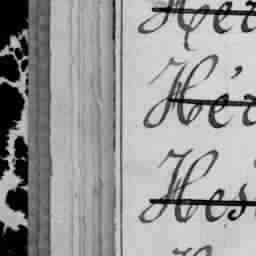 Her
Hér
Hes